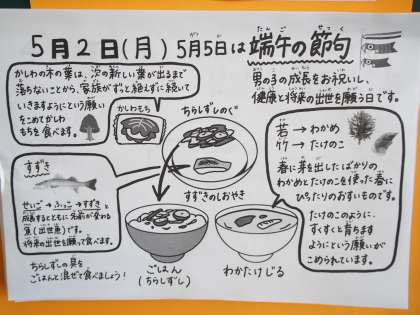 5月2日(月) 5月5日は端午の節句
男の子の成長をお祝いし、
健康と将来の出世を願う日です。
かしわの木の葉は、次の新しい葉が出るまで
落ちないことから、家族がずっと絶えずに続いて
いきますようにという願い
をこめてかしわ
もちを食べます。
かしわもち
ちらしずしのぐ
すずきのしおやき
すずき
せいご→ふっこ→すずきと
成長するとともに名前が変わる
魚(出世魚)です。
将来の出世を願って食べます。
若→わかめ
竹→たけのこ
春に芽を出したばかりの
わかめとたけのこを使った春に
ぴったりのおすいものです。
たけのこのように、
すくすくと育ちます
ようにという願いが
こめられています。
ごはん
(ちらしずし)
わかたけじる
ちらしずしの具を
ごはんと混ぜて食べましょう!